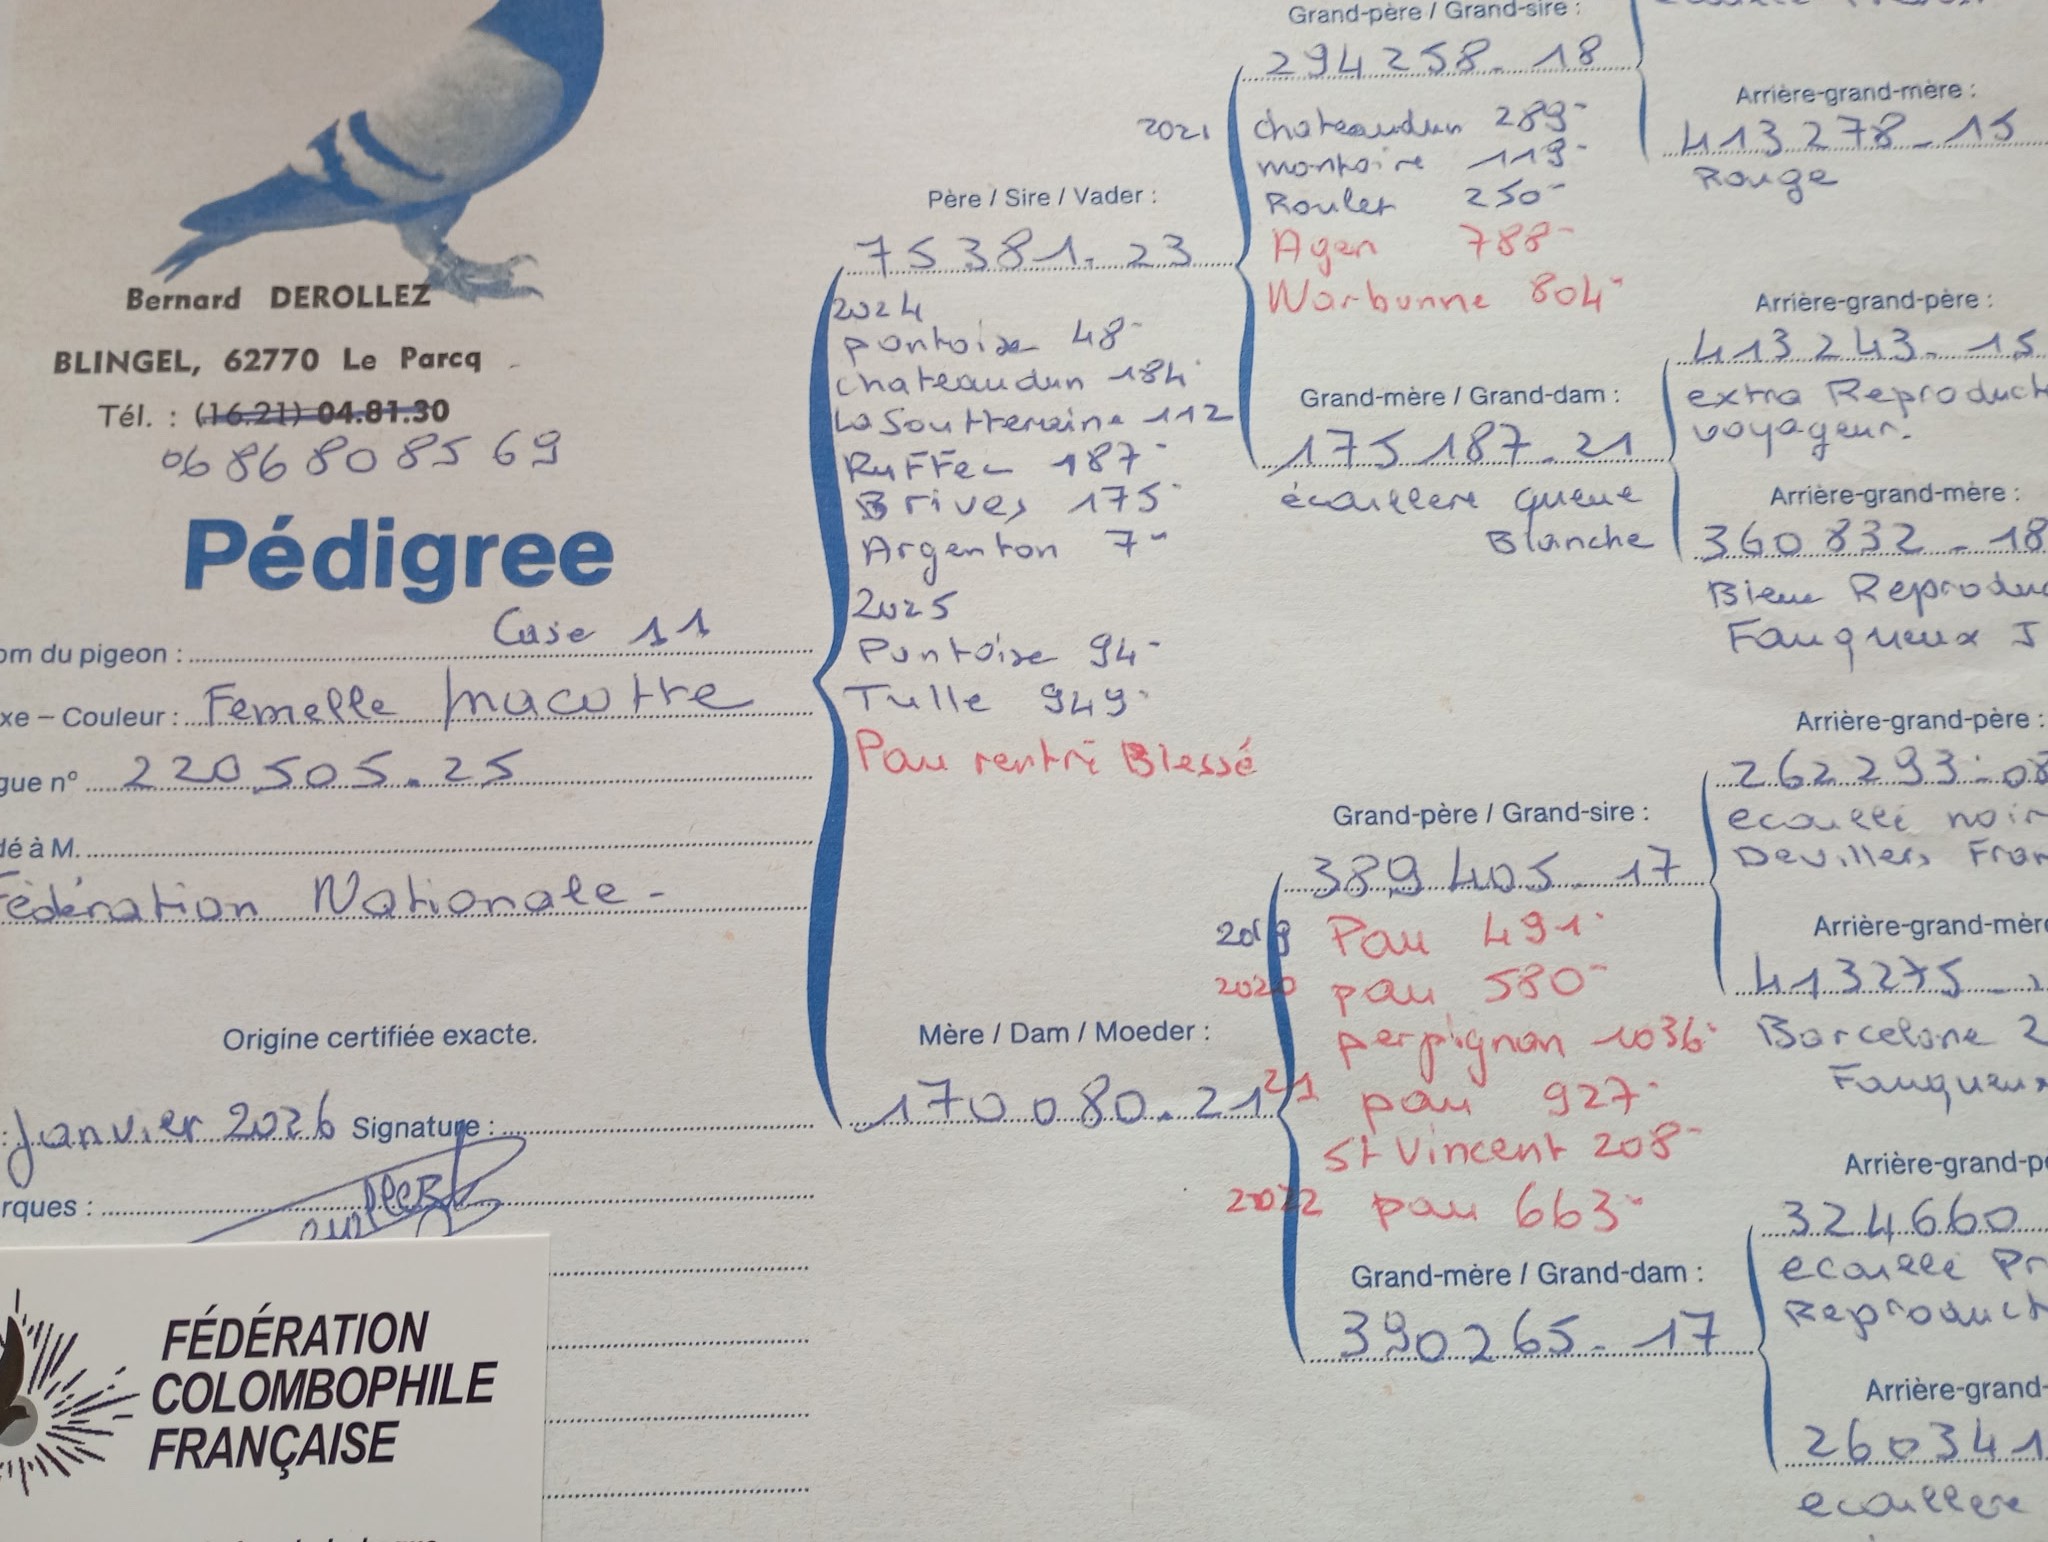 Bernard DEROLLEZ
BLINGEL, 62770 Le Parcq
Tél. : (16.21) 04.81.30
06 86 80 85 69
Pédigree
Case 11
om du pigeon :
xe – Couleur : Femelle macotte
gue n° 220.505.25
dé à M.
Fédération Nationale -
Origine certifiée exacte.
: Janvier 2026 Signature :
rques :
FÉDÉRATION
COLOMBOPHILE
FRANÇAISE
Père / Sire / Vader :
75381.23
2024
pontoise 48-
chateaudun 184-
La Soutteraine 112
Ruffec 187-
Brives 175-
Argenton 7-
2025
Pontoise 94-
Tulle 949-
Pau rentré Blessé
Mère / Dam / Moeder :
170080.21
Grand-père / Grand-sire :
294258-18
2021 chateaudun 289-
montoire 119-
Roulet 250-
Agen 788-
Narbonne 804-
Grand-mère / Grand-dam :
175187.21
écaillere queue
Blanche
Grand-père / Grand-sire :
389405-17
2019 Pau 491-
2020 pau 580-
perpignan 1036-
21 pau 927-
St Vincent 208-
2022 pau 663-
Grand-mère / Grand-dam :
390265-17
Arrière-grand-mère :
413278-15
Rouge
Arrière-grand-père :
413243-15
extra Reproduct
voyageur.
Arrière-grand-mère :
360832-18
Bleue Reproduc
Fauqueux J
Arrière-grand-père :
262293-08
ecaillé noir
Devillers Fran
Arrière-grand-mère
413275-
Barcelone 2
Fauqueux
Arrière-grand-pè
324660
ecaillé Pr
Reproduct
Arrière-grand-
260341
ecaillere